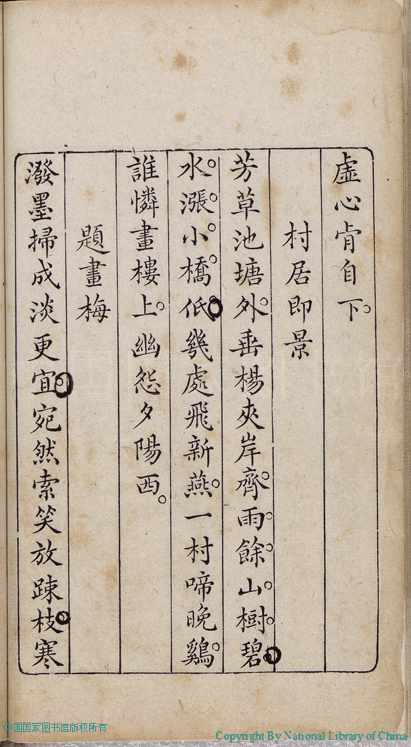 虛心肯自下
村居即景
芳草池塘外垂楊夾岸齊雨餘山樹碧
水漲小橋低幾處飛新燕一村啼晚鷄
誰憐畫樓上幽怨夕陽西
題畫梅
潑墨掃成淡更宜宛然索笑放疎枝寒
中国国家图书馆版权所有
Copyright By National Library of China